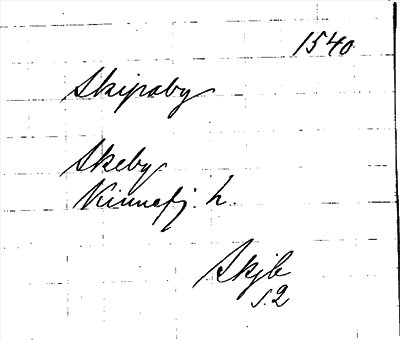 1540
Skipsby
Skeby
Kinnefj. h.
Skjb
s. 2